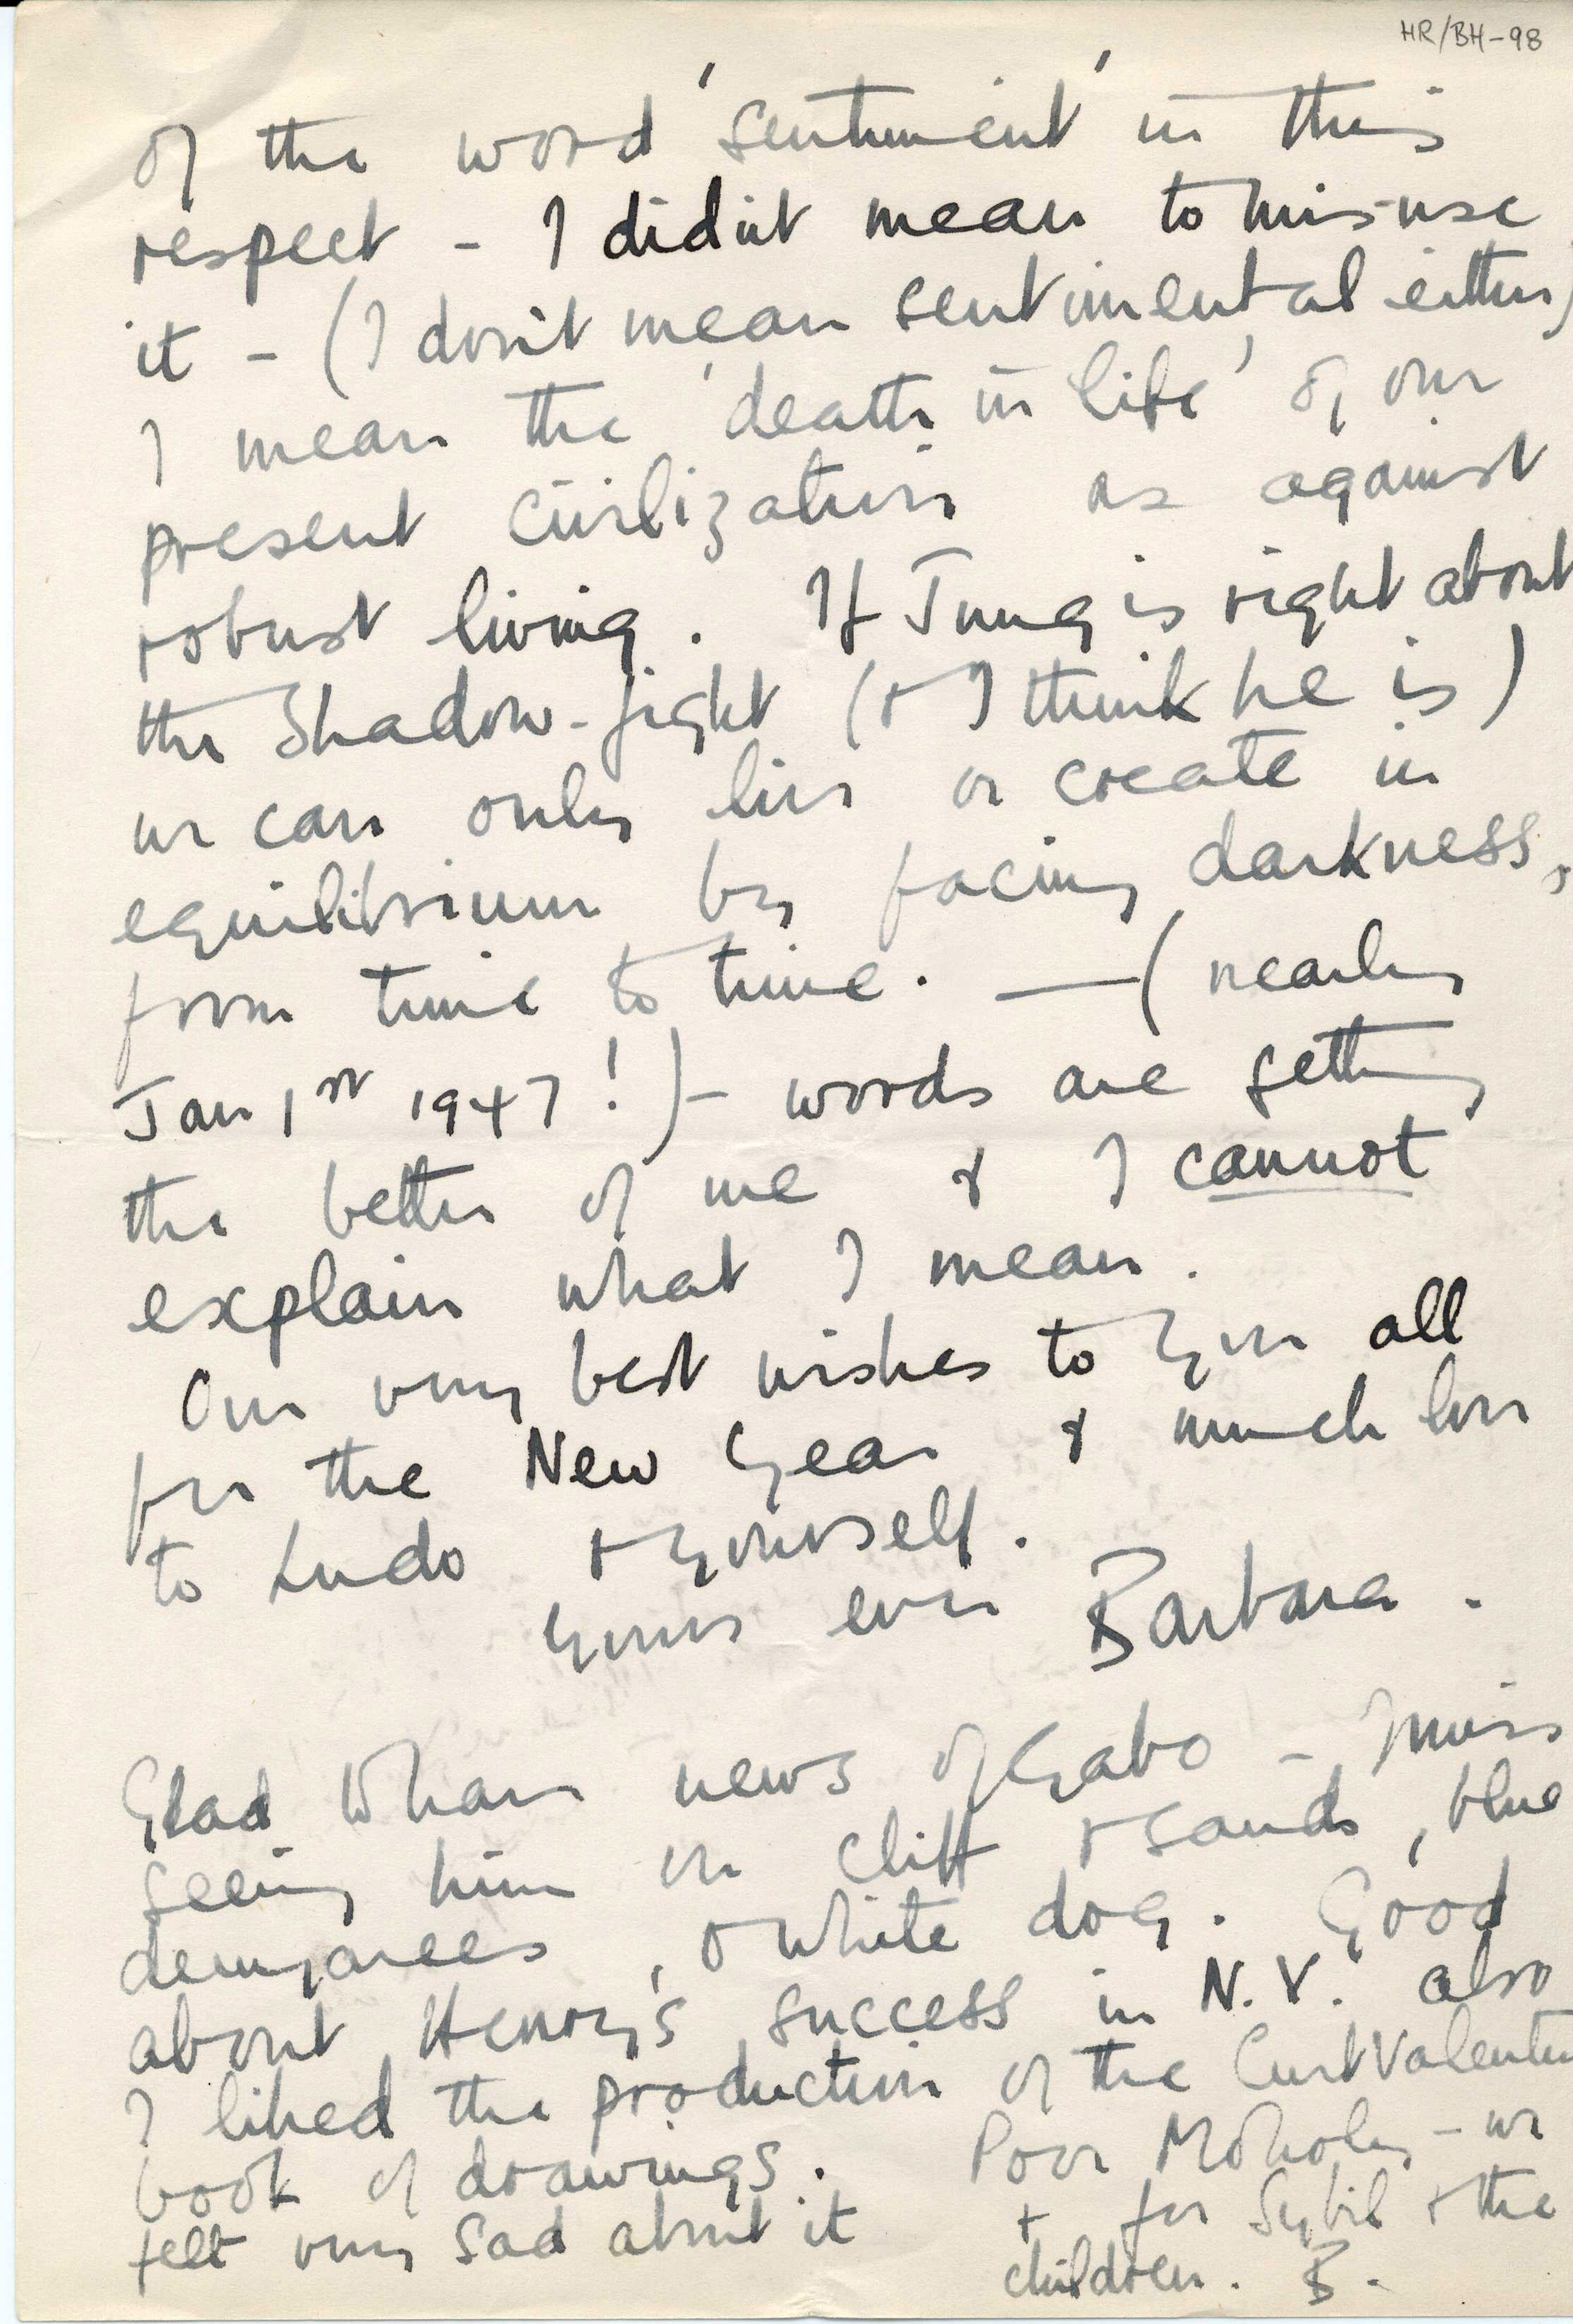 HR/BH-98
of the word 'sentiment' in this
respect - I didn't mean to mis-use
it - (I don't mean sentimental either)
I mean the 'death in life' of our
present civilization as against
robust living. If Jung is right about
the Shadow-fight (+ I think he is)
we can only live or create in
equilibrium by facing darkness,
from time to time. — (nearly
Jan 1st 1947!) - words are getting
the better of me & I cannot
explain what I mean.
Our very best wishes to you all
for the New Year & much love
to Ludo + yourself.
Yours ever Barbara.
Glad to hear news of Gabo - I miss
seeing him on cliff + sands, blue
dungarees, + white dog. Good
about Henry's success in N.Y. also
I liked the production of the Curt Valentin
book of drawings. Poor Moholy - we
felt very sad about it + for Sybil + the
children. B.